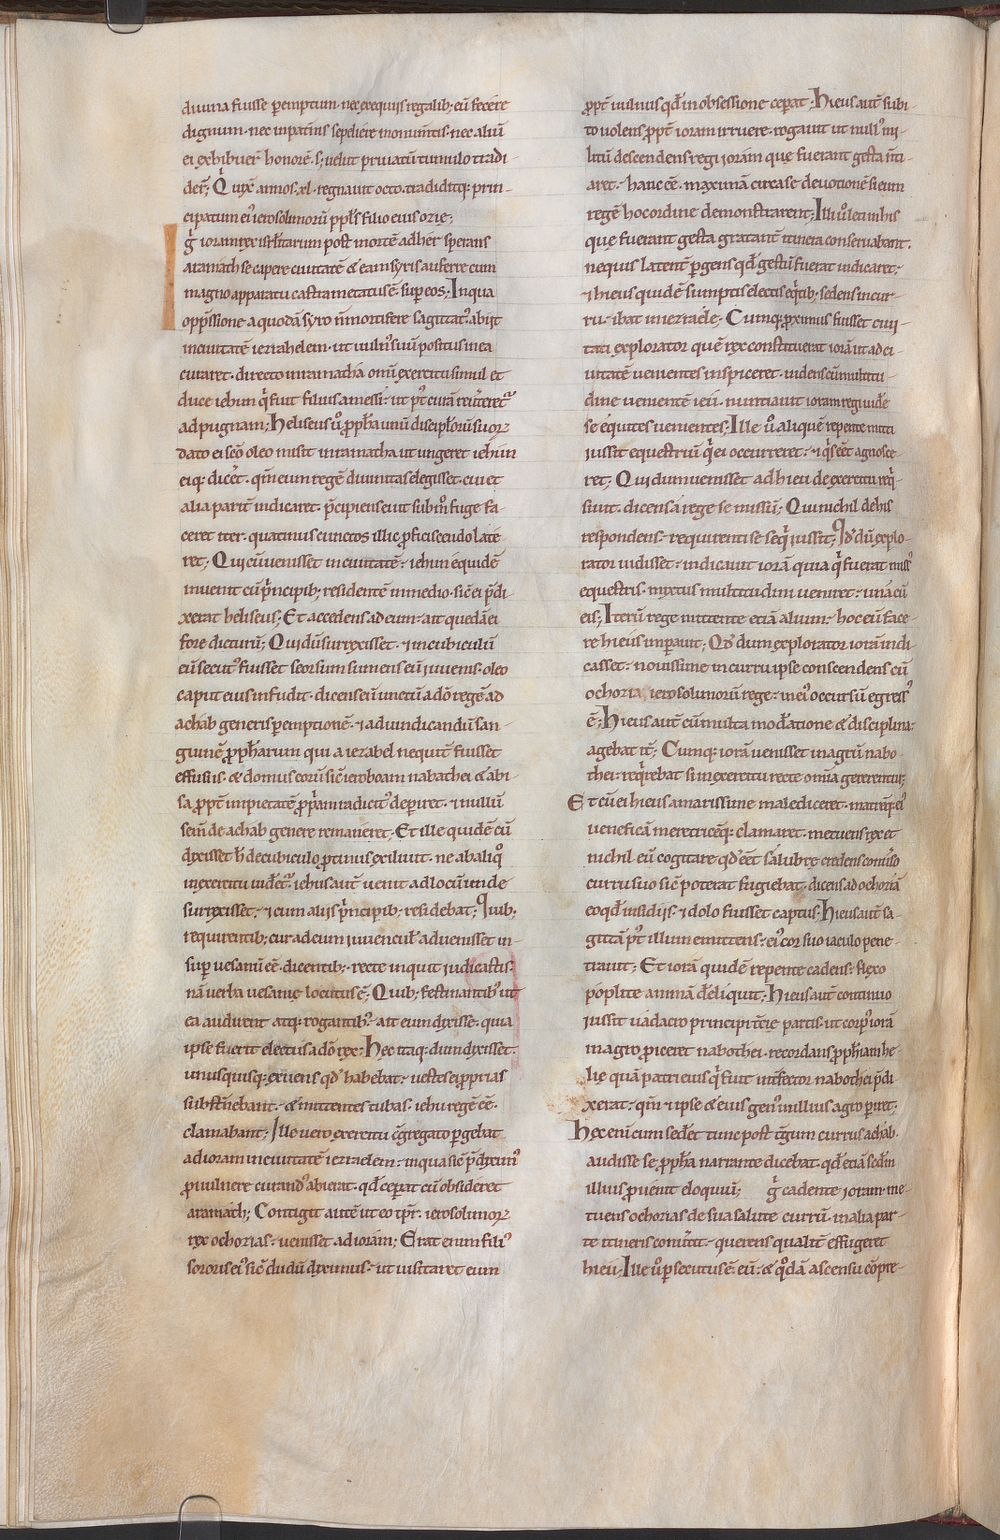 diuina fuisse pemptum· nec exequiis regalib; eū fecere
dignum· nec inpatriis sepeliere monumtis· nec aliū
ei exhibuer̄ honorē· s; uelut priuatū tumulo tradi-
der̄; Qui xē annos· xl· regnauit octo· tradiditq; prin-
cipatum ei' ierosolimorū ppls filio eius ozie;
Igr̄ ioram rex isrlitarum post mortē adher· sperans
aramath se capere ciuitatē & eam syris auferre cum
magno apparatu castrametatus ē· super eos; Inqua
opp̄ssione a quodā syro n̄ mortifere sagittat' abiit
inciuitatē iezrahelem· ut uuln' suū positus inea
curaret· directo inramatha omī exercitu simul et
duce iehun q̇ fuit filius amessi· ut p' curā reuteret'
ad pugnam; Heliseus ū prophā unū discipl'orū suorꝝ
dato ei scō oleo misit inramatha ut ungeret iehun
eiq; dicet· qm eum regē diuinitas elegisset· cui et
alia parit indicaret· p̄cipiens eī ut sub m fuge fa-
ceret iter· quatinus cunctos illic proficiscendo late-
ret; Qui cū uenisset inciuitatē· iehun equidē
inuenit cū p̄ncipib; residentē inmedio· sic ei p̄di-
xerat heliseus; Et accedens ad eum· ait quedā ei
fore dicturū; Qui dū surrexisset· & incubiculū
eū secut' fuisset seorsum sumens eū iuuenis· oleo
caput eius infudit· dicens eū unctū a dō regē ad
achab generis pemptionē· & ad uindicandū san-
guinē prophārum qui a iezabel nequit fuisset
effusus· & domus eorū sic ieroboam nabathei & abi-
sa propt impietatē propriam radicit' deperiret· & nullū
semē de achab genere remaneret; Et ille quidē cū
dixisset h' decubiculo protinus exiluit· ne ab aliq̇
inexercitu uideret'· iehus autē uenit ad locū unde
surrexisset· & cum aliis p̄ncipib; residebat; Quib;
requirentib; cur ad eum iuuencul' aduenisset in-
sup uesanū eē· dicentib;· recte inquit iudicastis·
nā uerba uesanie locutus ē; Quib; festinantib' ut
ea audirent atq; rogantib'· ait eum dixisse· quia
ipse fuerit electus a dō rex; Hec itaq; dum dixisset·
unusquisq; exuens qd' habebat· uestes ei proprias
substnebant· & mittentes tubas· iehu regē eē·
clamabant; Ille uero exercitu c̄gregato pergebat
ad ioram inciuitatē iezraelem· inqua sic p̄diximus
pro uulnere curand' abierat· qd' ceperat cū obsideret
aramath; Contigit autē ut eo tpr· ierosolimorꝝ
rex ochozias· uenisset ad ioram; Erat enim fili'
sororis ei' sic dudū diximus· ut uisitaret eum
propt uulnus qd' in obsessione ceperat; Hieus autē subi-
to uolens propt ioram irruere· rogauit ut null' mi-
litū descendens regi iorām que fuerant gesta n̄ti-
aret· hanc eē· maximā circa se deuotionē si eum
regē hoc ordine demonstrarent; Illi ū letini his
que fuerant gesta gratant itinera conseruabant·
nequis latent pergens qd' gestū fuerat indicaret;·
& hieus quidē sumptis electis eq̇tib; sedens incur-
ru· ibat inezraele; Cumq; proximus fuisset ciui-
tati explorator quē rex constituerat iorā ut ad ci-
uitatē uenientes inspiceret· uidens cū multitu-
dine uenientē ieū· nuntiauit ioram regi uide-
se equites uenientes; Ille ū aliquē repente mitti
iussit equestriū q̇ ei occurreret· & q's eēt agnosce-
ret; Qui dum uenisset ad hieu de exercitu req'-
siuit· dicens a rege se missū; Qui nichil de his
respondens· requirenti se seq' iussit; Qd' dū explo-
rator uidisset· indicauit iorā quia q' fuerat miss'
equestris· mixtus multitudini ueniret· unā cū
eis; Iterū rege mittente etiā alium· hoc eū face-
re hieus imperauit; Qd' dum explorator iorā indi-
casset· nouissime incurru ipse conscendens cū
ochozia ierosolimorū rege· in ei' occursū egress'
ē; Hieus autē cū multa moderatione & disciplina·
agebat itē; Cumq; iorā uenisset inagrū nabo-
thei· reqrebat si inexercitu recte omia gererentur;
Et cū ei hieus amarissime malediceret· matrēq; ei'
ueneficā meretricēq; clamaret· metuens rex et
nichil eū cogitare qd' eēt salubre credens conuerso
curru suo sic poterat fugiebat· dicens ad ochoziā
eo qd' insidiis· & dolo fuisset captus; Hieus autē sa-
gittā p' illum emittens· ei' cor suo iaculo pene-
trauit; Et iorā quidē repente cadens· flexo
poplite animā deliquit; Hieus autē continuo
iussit uadacro principi tercie partis· ut corp' iorā
inagro proiceret nabothei· recordans prophiam he-
lie quā patri eius q' fuit int'fector nabothei p̄di-
xerat· qm & ipse & eius gen' inillius agro periret·
Hec enī cum sederet tunc post tergum currus achab·
audisse se propha narrante dicebat· qd' etiā scdm
illius prouenit eloquiū; Igr̄ cadente ioram· me-
tuens ochozias de sua salute currū· inalia par-
te itineris conuertit· querens qualit effugeret
hieu; Ille ū persecutus ē· eū· & q'dā ascensu cōpre-